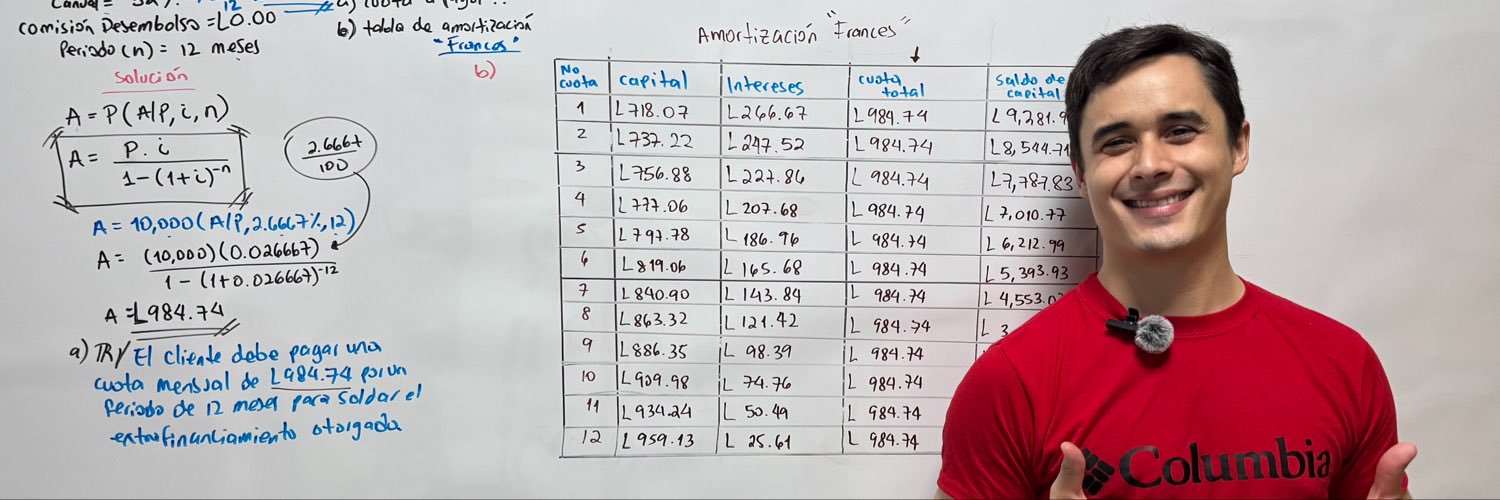 comisión Desembolso = L0.00
Periodo (n) = 12 meses
12
b) tabla de amortización
"Frances"
b)
Solución
A = P(A/P, i, n)
A = P. i
1-(1+i)⁻ⁿ
2.6667
100
A = 10,000(A/P, 2.6667%, 12)
A = (10,000)(0.026667)
1 - (1+0.026667)⁻¹²
A = L984.74
a) TR/ El cliente debe pagar una
cuota mensual de L984.74 por un
Periodo de 12 meses para Saldar el
financiamiento otorgado
Amortización "Frances"
No cuota capital Intereses cuota total Saldo de capital
1 L718.07 L266.67 L984.74 L9,281.9
2 L737.22 L247.52 L984.74 L8,544.71
3 L756.88 L227.86 L984.74 L7,787.83
4 L777.06 L207.68 L984.74 L7,010.77
5 L797.78 L186.96 L984.74 L6,212.99
6 L819.06 L165.68 L984.74 L5,393.93
7 L840.90 L143.84 L984.74 L4,553.0
8 L863.32 L121.42 L984.74 L3
9 L886.35 L98.39 L984.74 L
10 L909.98 L74.76 L984.74
11 L934.24 L50.49 L984.74
12 L959.13 L25.61 L984.74
Columbia